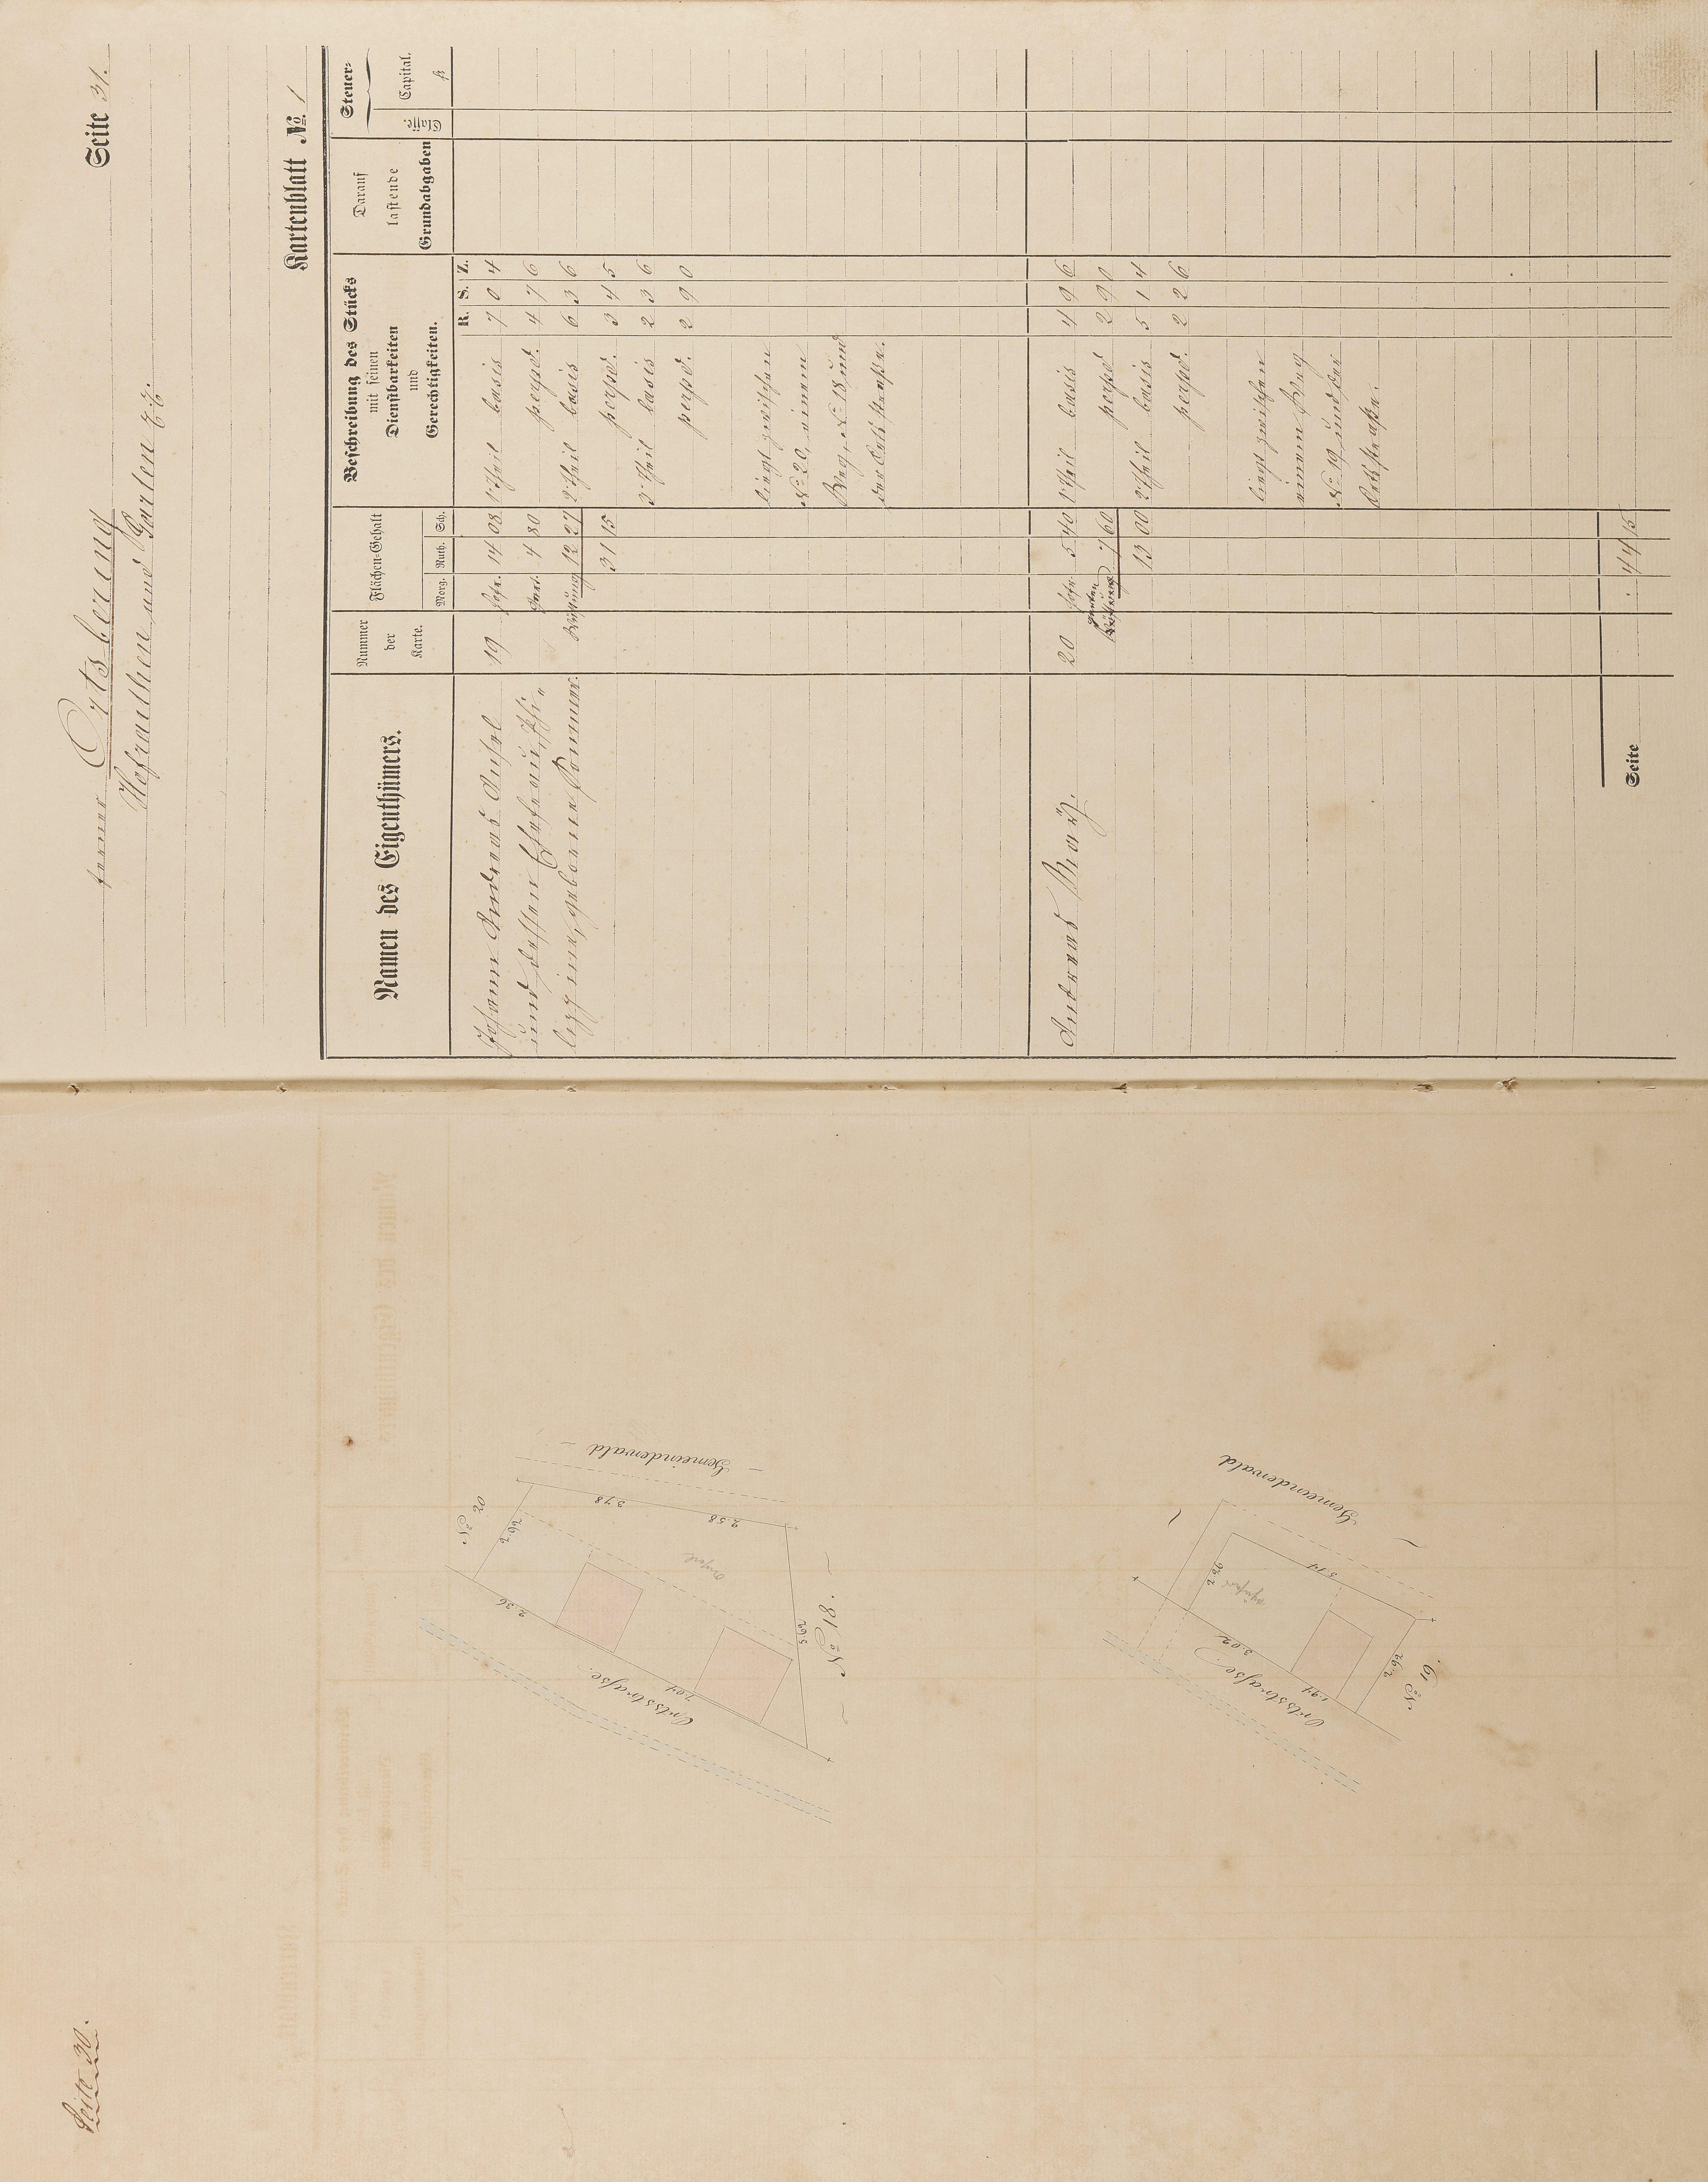 Seite 30.
Gemeindewald
No 20
2.92
3.78
2.58
2.36
3.62
7.04
Ortsstraße.
No 18.
Gemeindewald
2.26
3.14
3.02
1.94
2.92
Ortsstraße.
No 19.
Seite 31.
ferner Ortsbering
Hofraithen und Gärten
Kartenblatt No. 1
Namen des Eigenthümers.
Nummer
der
Karte.
Flächen-Gehalt
Morg. Ruth. Sch.
Beschreibung des Stücks
mit seinen
Dienstbarkeiten
und
Gerechtigkeiten.
Darauf
lastende
Grundabgaben
Steuer-
Classe. Capital.
R. S. Z.
Johann Andreas 19 Hofr. 14 08 1 Theil basis 7 0 4
und dessen Ehefrau, Phi- 4 80 perpd. 4 7 6
lippine, geborne Sommer. 12 27 2 Theil basis 6 3 6
31 15 perpd. 3 4 5
3 Theil basis 2 3 6
perpd. 2 9 0
liegt zwischen
No 20, einem
Weg, No 18 und
der Ortsstraße.
Andreas 20 Hofr. 5 40 1 Theil basis 4 9 6
7 60 perpd 2 9 0
13 00 2 Theil basis 5 1 4
perpd. 2 2 6
liegt zwischen
einem Weg
No 19 und der
Ortsstraße.
Seite 44 15